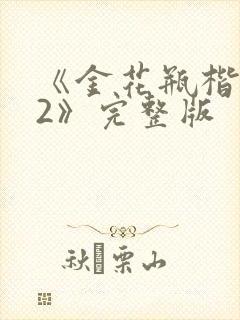 《金花瓶楷
2》完整版
秋 栗山